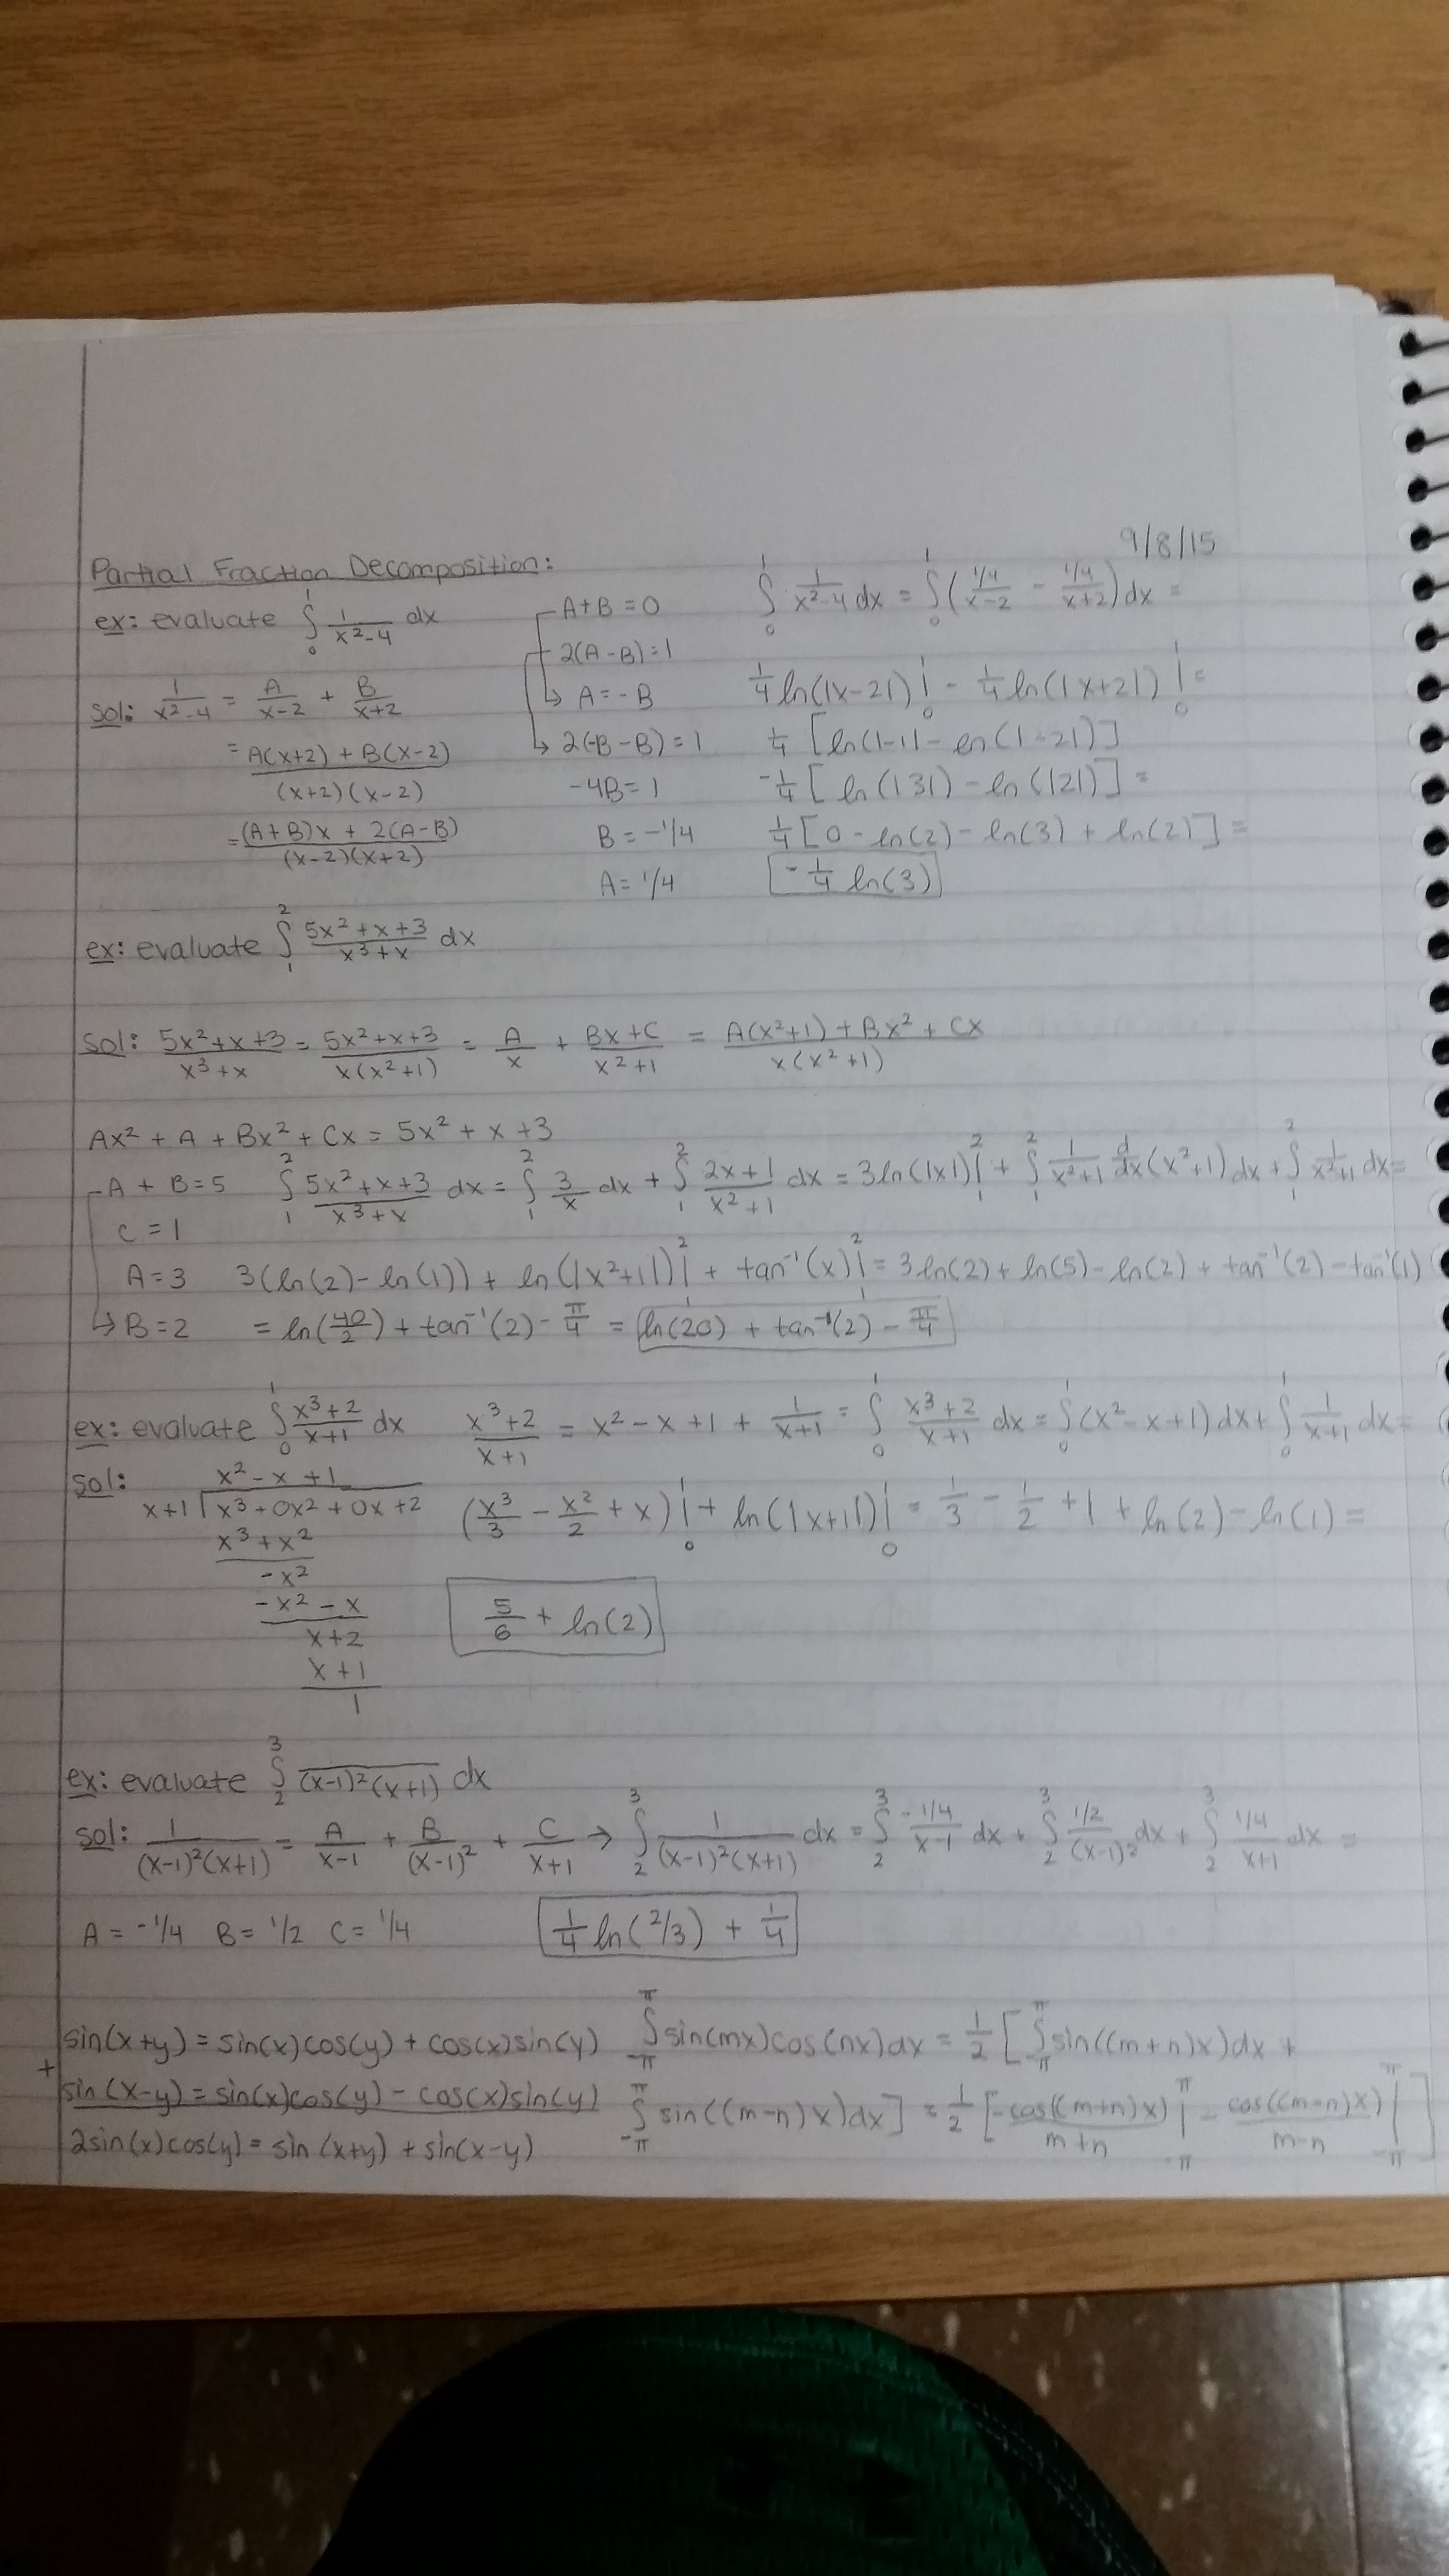 9/8/15
Partial Fraction Decomposition:
ex: evaluate ∫₀¹ 1/(x²-4) dx
sol: 1/(x²-4) = A/(x-2) + B/(x+2)
= (A(x+2) + B(x-2))/((x+2)(x-2))
= ((A+B)x + 2(A-B))/((x-2)(x+2))
A+B=0
2(A-B)=1
↳ A=-B
↳ 2(-B-B)=1
-4B=1
B=-1/4
A=1/4
∫₀¹ 1/(x²-4) dx = ∫₀¹ ((1/4)/(x-2) - (1/4)/(x+2)) dx =
1/4 ln(|x-2|)|₀¹ - 1/4 ln(|x+2|)|₀¹ =
1/4 [ln(|-1|) - ln(|-2|)]
-1/4 [ln(|3|) - ln(|2|)] =
1/4 [0 - ln(2) - ln(3) + ln(2)] =
-1/4 ln(3)
ex: evaluate ∫₁² (5x²+x+3)/(x³+x) dx
sol: (5x²+x+3)/(x³+x) = (5x²+x+3)/(x(x²+1)) = A/x + (Bx+C)/(x²+1) = (A(x²+1) + Bx² + Cx)/(x(x²+1))
Ax² + A + Bx² + Cx = 5x² + x + 3
A + B = 5
C = 1
A = 3
↳ B = 2
∫₁² (5x²+x+3)/(x³+x) dx = ∫₁² 3/x dx + ∫₁² (2x+1)/(x²+1) dx = 3ln(|x|)|₁² + ∫₁² 1/(x²+1) d/dx (x²+1) dx + ∫₁² 1/(x²+1) dx =
3(ln(2)-ln(1)) + ln(|x²+1|)|₁² + tan⁻¹(x)|₁² = 3ln(2) + ln(5) - ln(2) + tan⁻¹(2) - tan⁻¹(1)
= ln(40/2) + tan⁻¹(2) - π/4 = ln(20) + tan⁻¹(2) - π/4
ex: evaluate ∫₀¹ (x³+2)/(x+1) dx
(x³+2)/(x+1) = x² - x + 1 + 1/(x+1) = ∫₀¹ (x³+2)/(x+1) dx = ∫₀¹ (x²-x+1) dx + ∫₀¹ 1/(x+1) dx =
sol:
x² - x + 1
x+1 √x³ + 0x² + 0x + 2
x³ + x²
-x²
-x² - x
x+2
x+1
1
(x³/3 - x²/2 + x)|₀¹ + ln(|x+1|)|₀¹ = 1/3 - 1/2 + 1 + ln(2) - ln(1) =
5/6 + ln(2)
ex: evaluate ∫₂³ /((x-1)²(x+1)) dx
sol: 1/((x-1)²(x+1)) = A/(x-1) + B/(x-1)² + C/(x+1) → ∫₂³ 1/((x-1)²(x+1)) dx = ∫₂³ (-1/4)/(x-1) dx + ∫₂³ (1/2)/(x-1)² dx + ∫₂³ (1/4)/(x+1) dx =
A = -1/4 B = 1/2 C = 1/4
1/4 ln(2/3) + 1/4
sin(x+y) = sin(x)cos(y) + cos(x)sin(y)
+
sin(x-y) = sin(x)cos(y) - cos(x)sin(y)
2sin(x)cos(y) = sin(x+y) + sin(x-y)
∫₋π^π sin(mx)cos(nx)dx = 1/2 [∫₋π^π sin((m+n)x)dx +
∫₋π^π sin((m-n)x)dx] = 1/2 [-cos((m+n)x)/(m+n)|₋π^π - cos((m-n)x)/(m-n)|₋π^π]